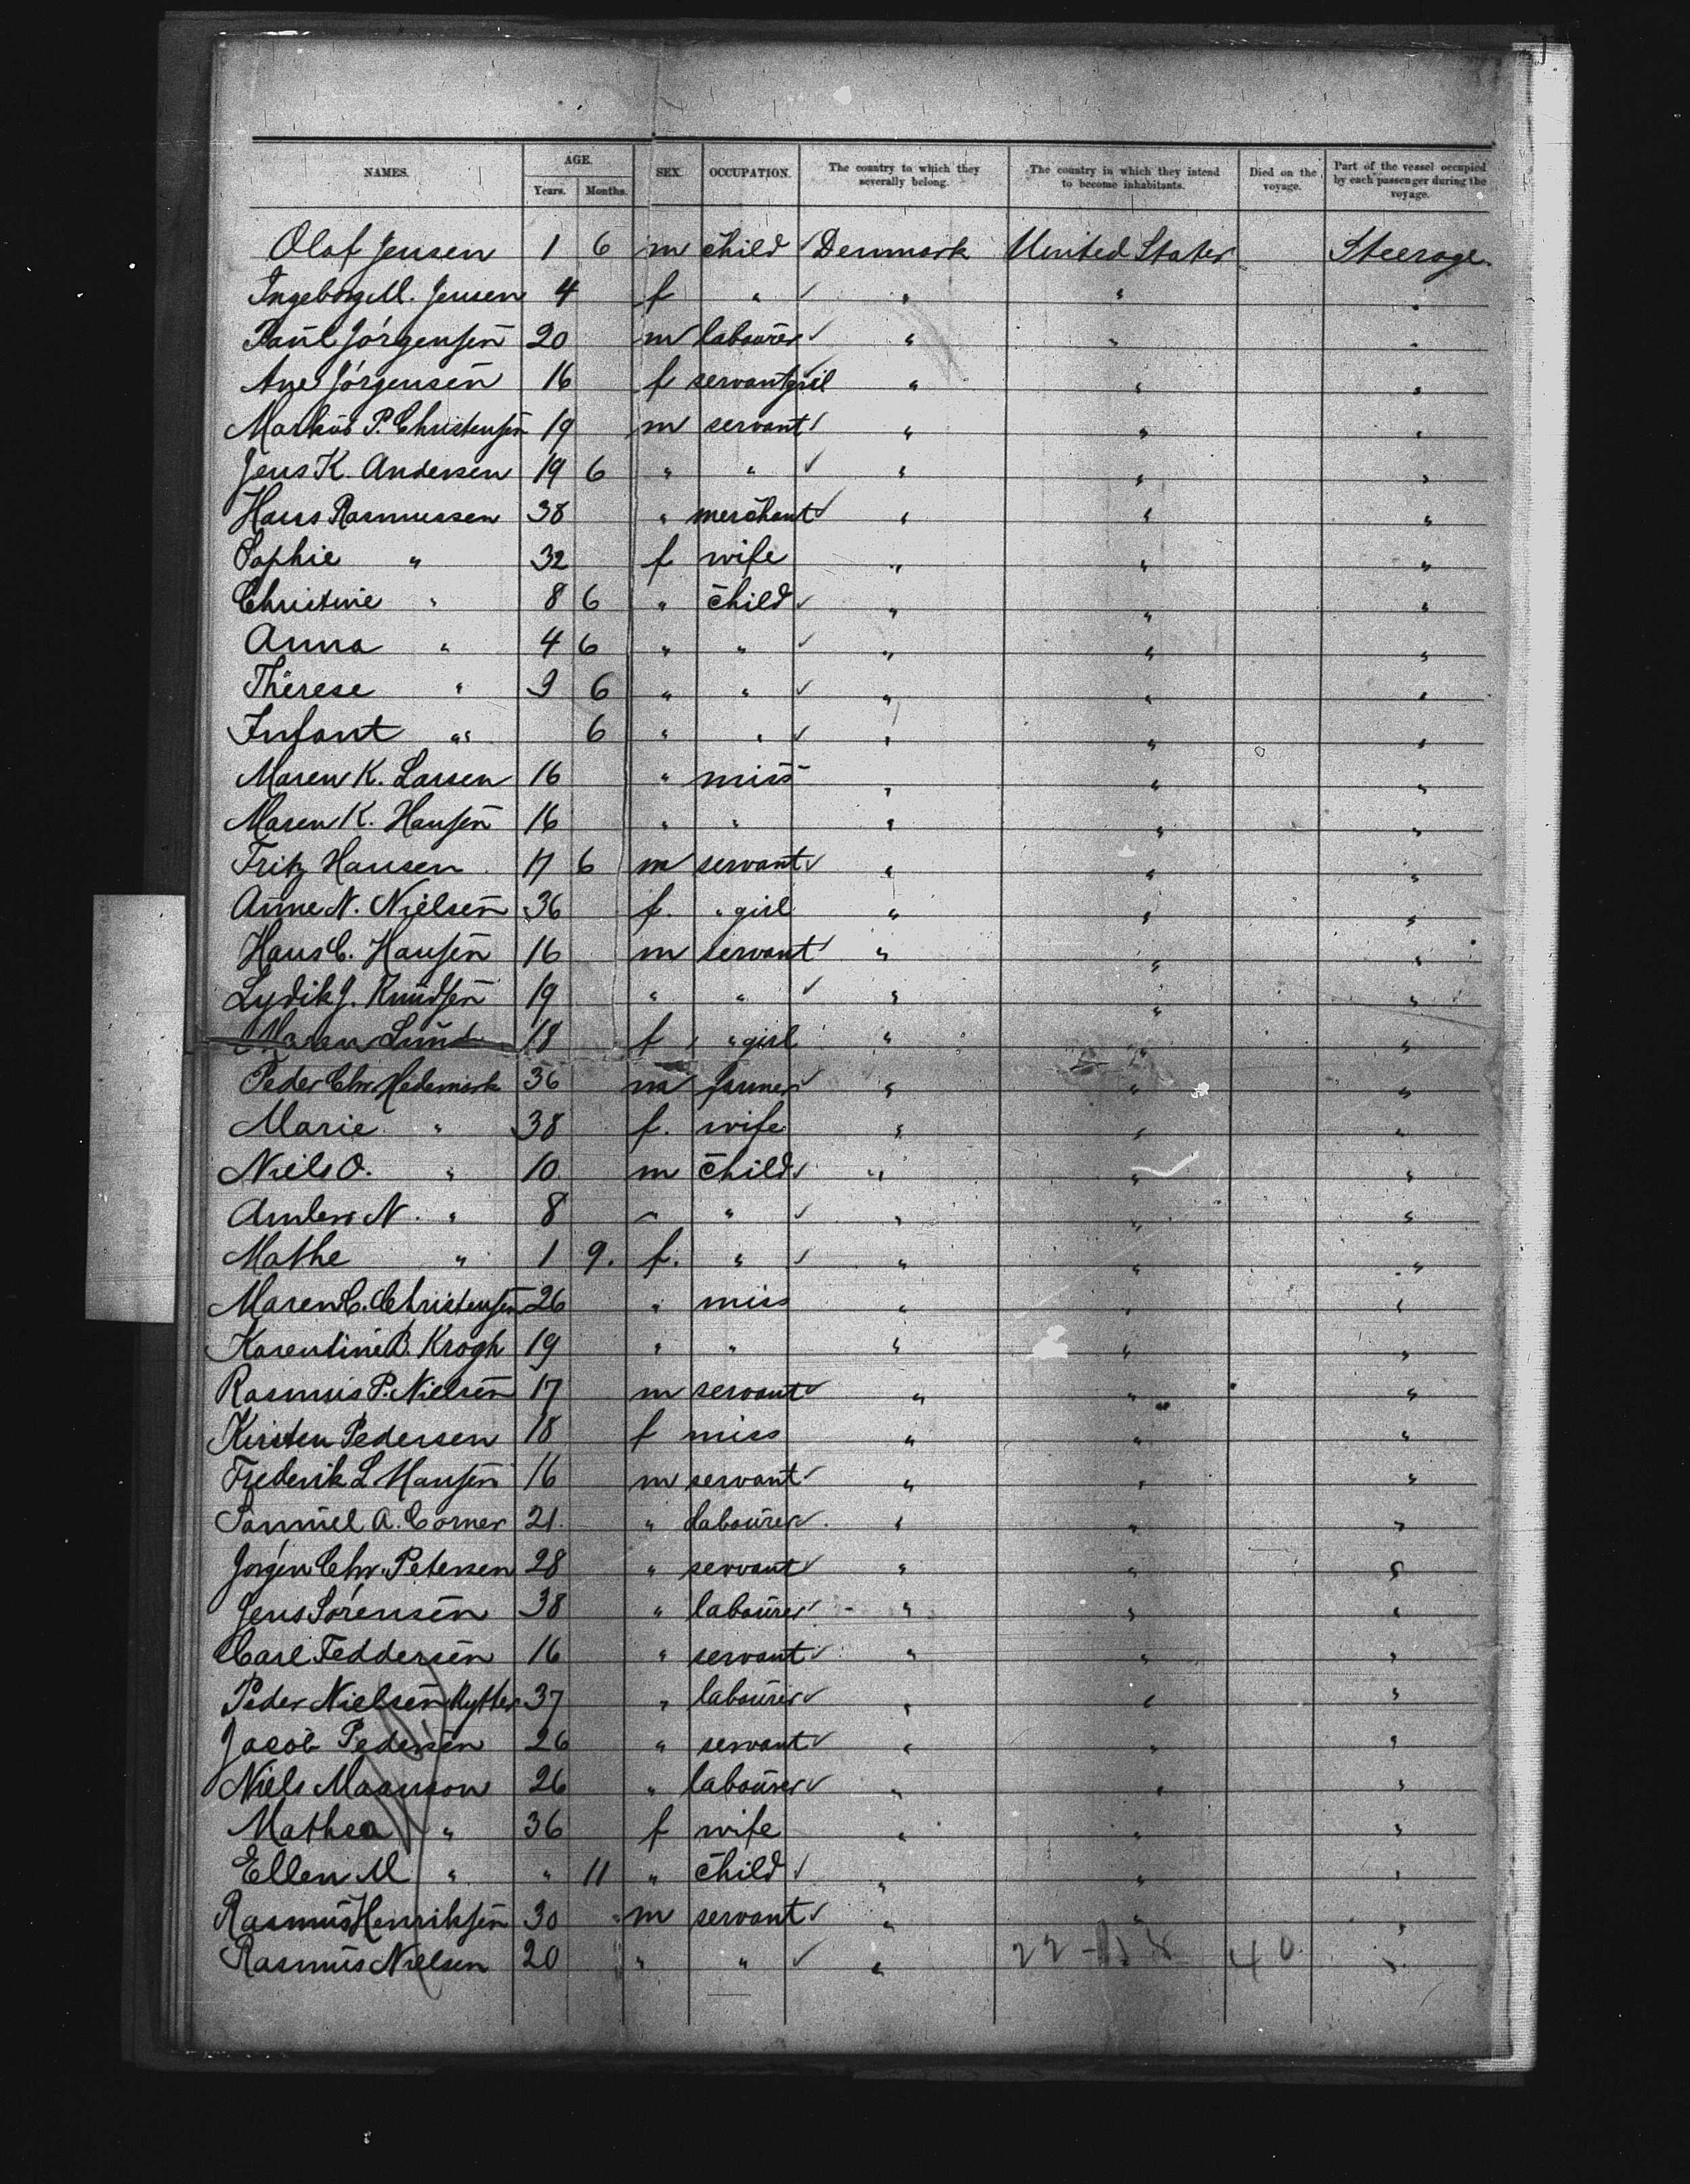 NAMES. AGE. Years. Months. SEX. OCCUPATION. The country to which they severally belong. The country in which they intend to become inhabitants. Died on the voyage. Part of the vessel occupied by each passenger during the voyage.
Olaf Jensen 1 6 m child ✓ Denmark United States Steerage.
Ingeborg M. Jensen 4 f " ✓ " " "
Paul Jörgensen 20 m labourer ✓ " " "
Ane Jörgensen 16 f servantgirl " " "
Markus P. Christensen 19 m servant ✓ " " "
Jens K. Andersen 19 6 " " ✓ " " "
Hans Rasmussen 38 " merchant ✓ " " "
Sophie " 32 f wife " " "
Christine " 8 6 " child ✓ " " "
Anna " 4 6 " " ✓ " " "
Thérese " 9 6 " " ✓ " " "
Infant " 6 " " ✓ " " "
Maren K. Larsen 16 " miss " " "
Maren K. Hansen 16 " " " " "
Fritz Hansen 17 6 m servant ✓ " " "
Anne N. Nielsen 36 f. " girl " " "
Hans C. Hansen 16 m servant ✓ " " "
Lydik J. Knudsen 19 " " ✓ " " "
Maren Lund 18 f " girl " " "
Peder Chr. Hedemark 36 m farmer ✓ " " "
Marie " 38 f. wife " " "
Niels O. " 10 m child ✓ " " "
Anders N. " 8 " " ✓ " " "
Mathe " 1 9. f. " ✓ " " "
Maren C. Christensen 26 " miss " " "
Karentine B. Krogh 19 " " " " "
Rasmus P. Nielsen 17 m servant ✓ " " "
Kirsten Pedersen 18 f miss " " "
Frederik L. Hansen 16 m servant ✓ " " "
Samuel A. Corner 21. " labourer ✓ " " "
Jörgen Chr. Petersen 28 " servant ✓ " " "
Jens Sörensen 38 " labourer ✓ " " "
Carl Feddersen 16 " servant ✓ " " "
Peder Nielsen Rytter 37 " labourer ✓ " " "
Jacob Pedersen 26 " servant ✓ " " "
Niels Maanson 26 " labourer ✓ " " "
Mathea " 36 f wife " " "
Ellen M " " 11 " child ✓ " " "
Rasmus Henriksen 30 m servant ✓ " " "
Rasmus Nielsen 20 " " ✓ " 22 - 18 40 "